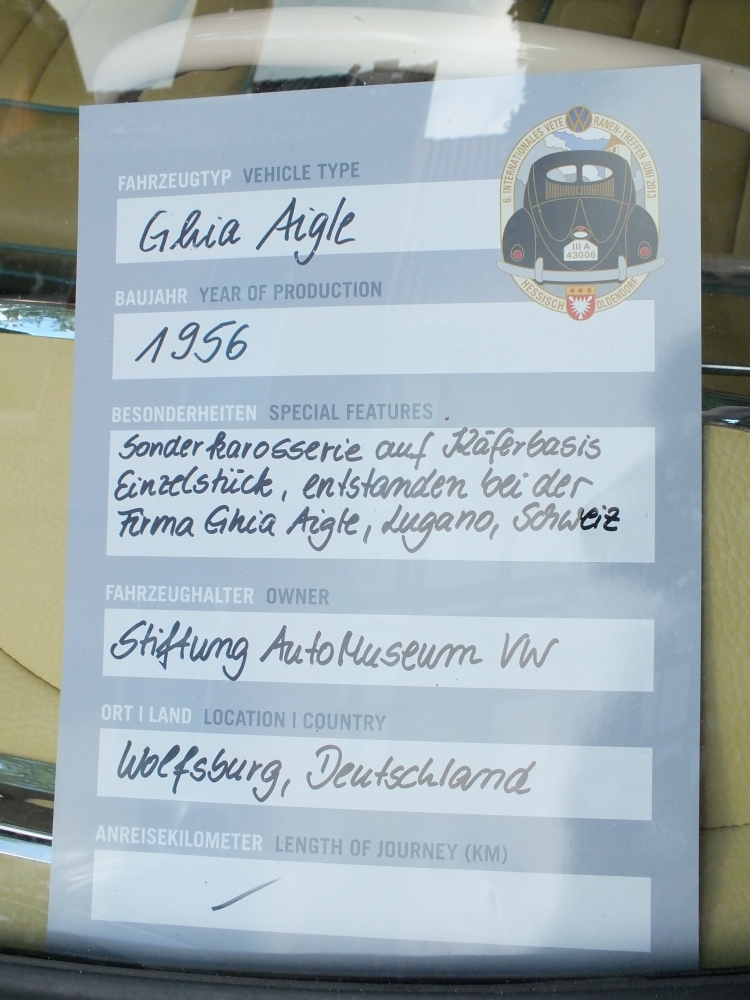 6. INTERNATIONALES VETERANEN-TREFFEN JUNI 2013
VW
III A
43006
HESSISCH OLDENDORF
FAHRZEUGTYP VEHICLE TYPE
Ghia Aigle
BAUJAHR YEAR OF PRODUCTION
1956
BESONDERHEITEN SPECIAL FEATURES
Sonderkarosserie auf Käferbasis
Einzelstück, entstanden bei der
Firma Ghia Aigle, Lugano, Schweiz
FAHRZEUGHALTER OWNER
Stiftung AutoMuseum VW
ORT | LAND LOCATION | COUNTRY
Wolfsburg, Deutschland
ANREISEKILOMETER LENGTH OF JOURNEY (KM)